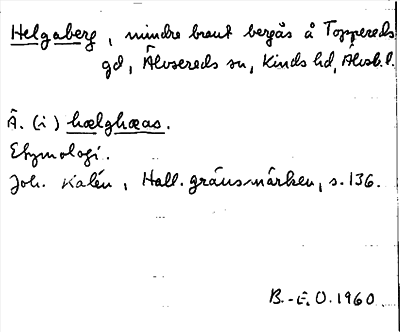 Helgaberg, mindre brant bergås å Toppereds
gd, Älvsereds sn, Kinds hd, Älvsb. l.
Ä. (i) hælghæas.
Etymologi.
Joh. Kalén, Hall. gränsmärken, s. 136.
B.-E. O. 1960